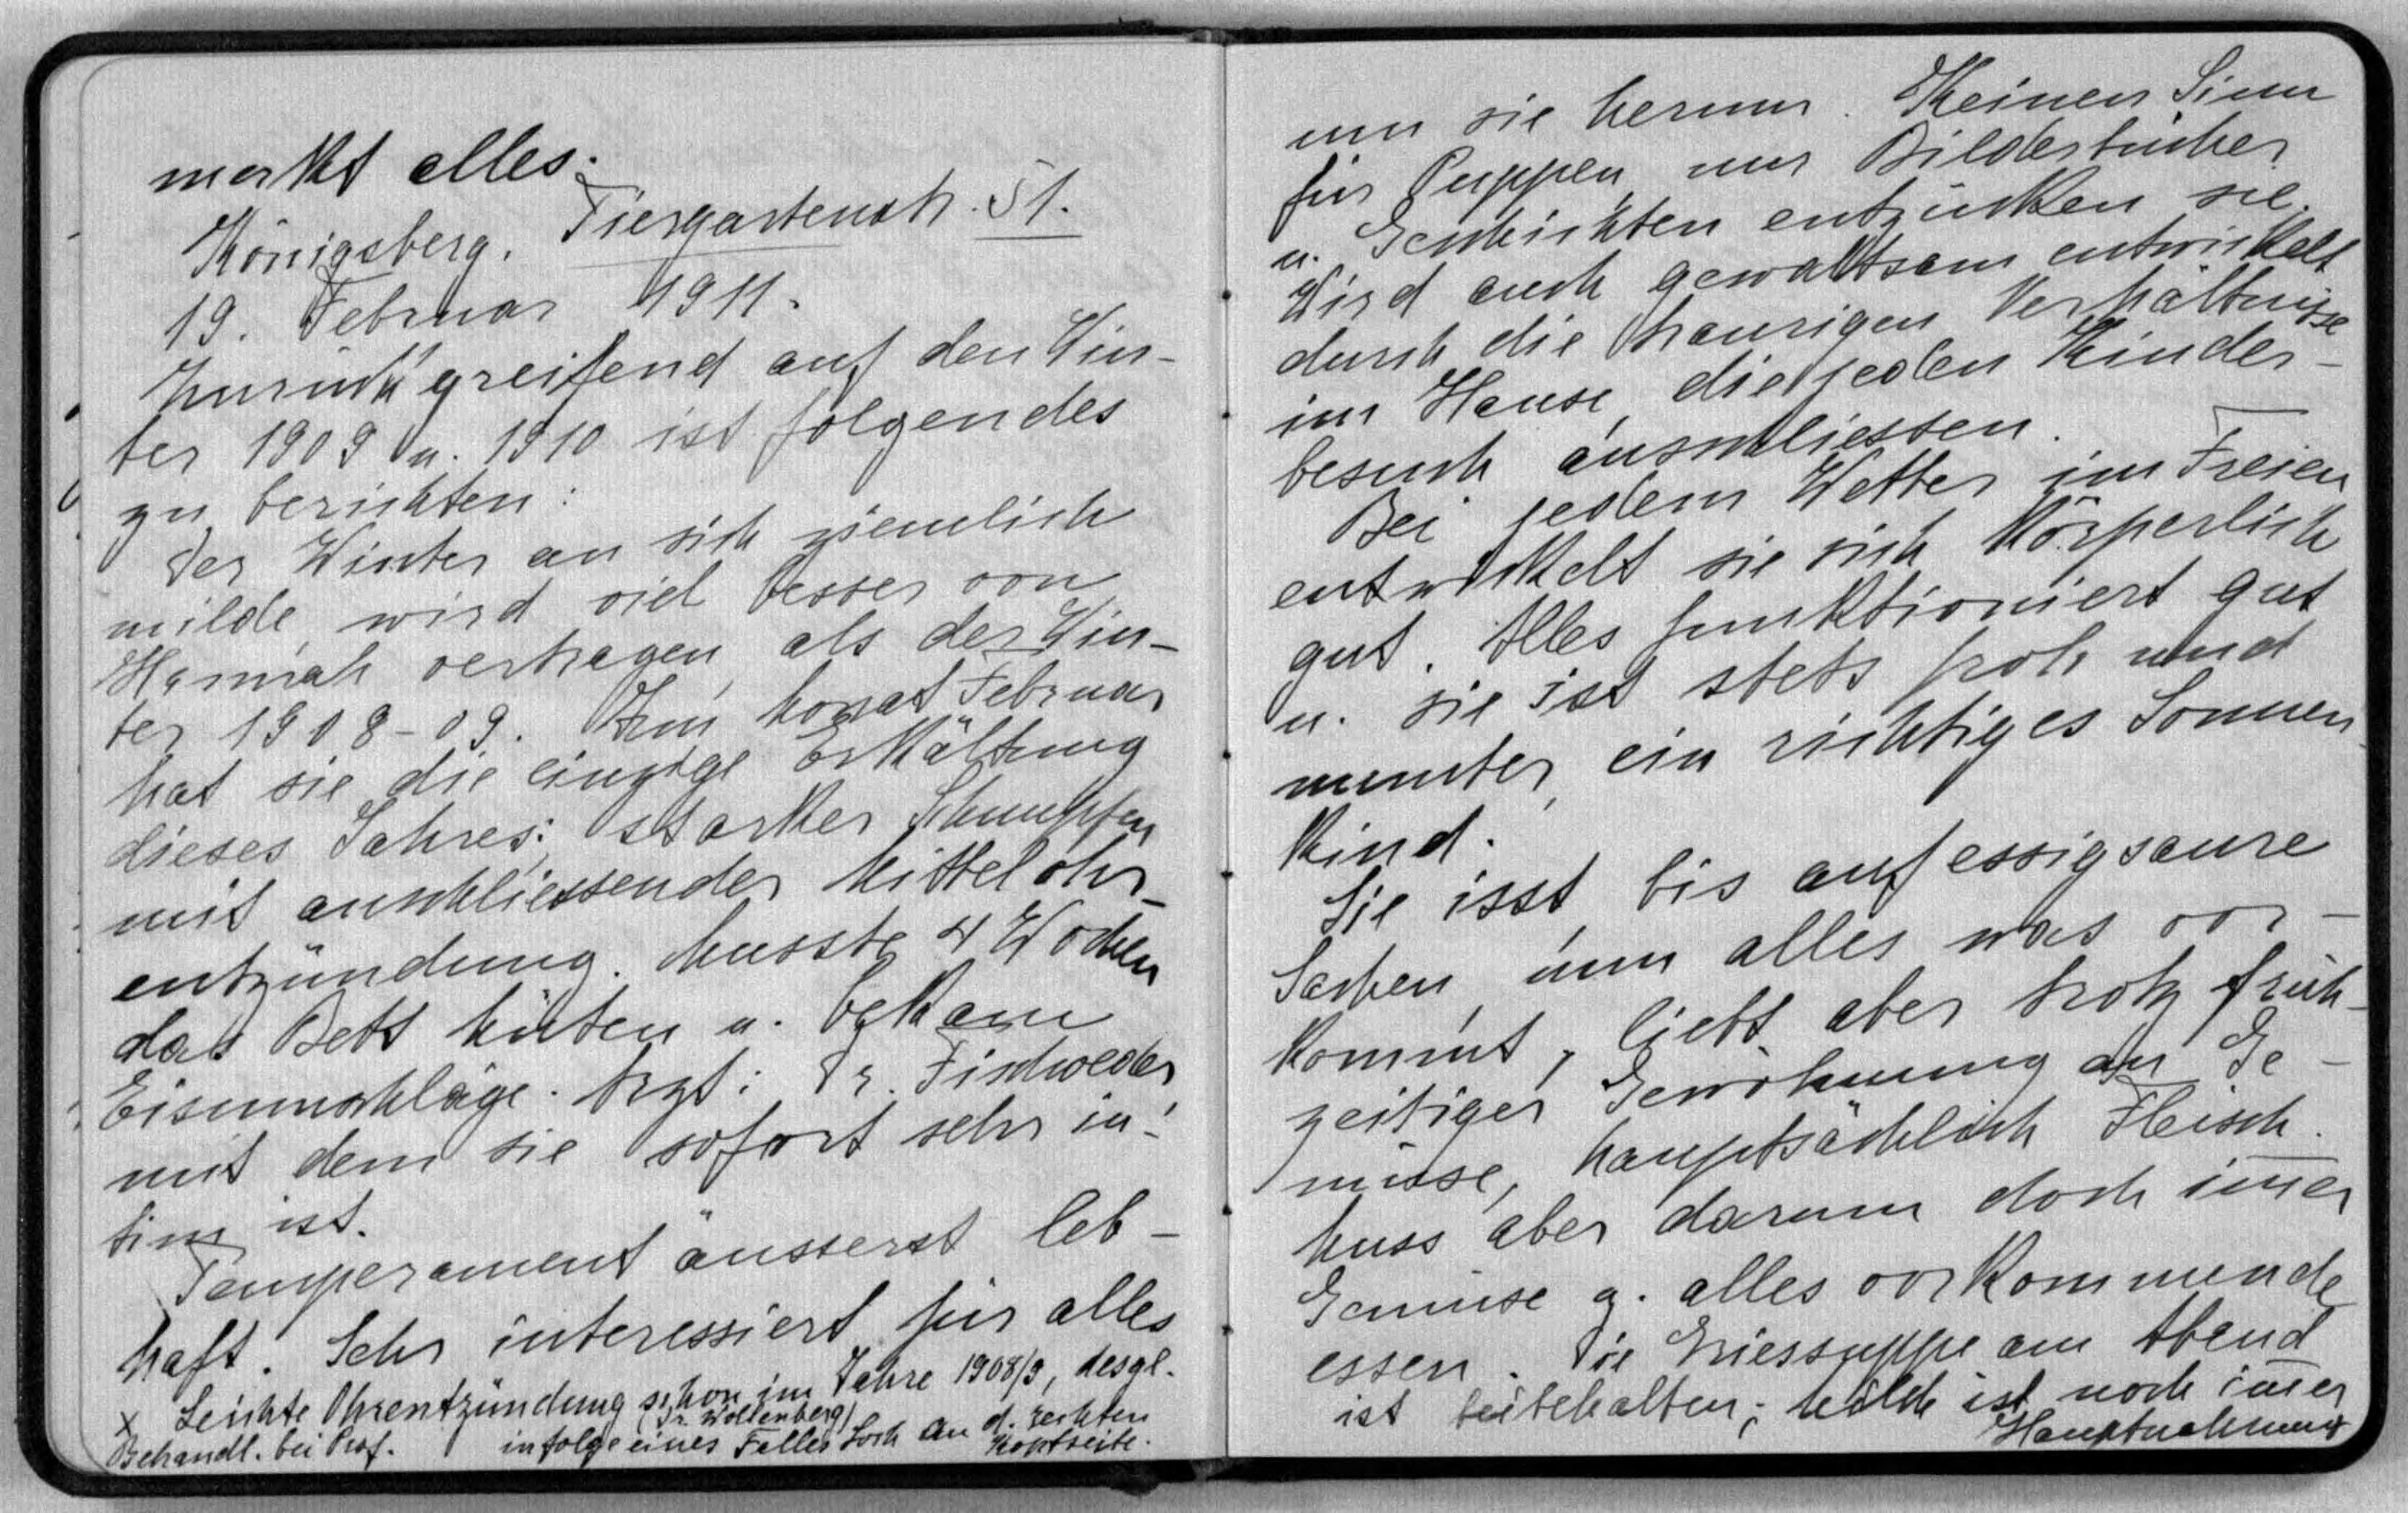 merkt alles.
Königsberg. Tiergartenstr. 51.
19. Februar 1911.
Zurückgreifend auf den Win-
ter 1909 u. 1910 ist folgendes
zu berichten:
Der Winter an sich ziemlich
milde, wird viel besser von
Hannah vertragen, als der Win-
ter 1908-09. Im Monat Februar
hat sie die einzige Erkältung
dieses Jahres: starker Schnupfen
mit anschliessender Mittelohr-
entzündung. Musste 4 Wochen
das Bett hüten u. bekam
Eisumschläge. Arzt: Dr. Fischoeder,
mit dem sie sofort sehr in-
tim ist.
Temperament äusserst leb-
haft. Sehr interessiert für alles
x Leichte Ohrentzündung schon im Jahre 1908/9, desgl.
(Dr. Wollenberg)
Behandl. bei Prof. infolge eines Falles Loch an d. rechten
Kopfseite.
um sie herum. Keinen Sinn
für Puppen, nur Bilderbücher
u. Geschichten entzücken sie.
Wird auch gewaltsam entwickelt
durch die traurigen Verhältnisse
im Hause, die jeden Kinder-
besuch ausschliessen.
Bei jedem Wetter im Freien
entwickelt sie sich körperlich
gut. Alles funktioniert gut
u. sie ist stets froh und
munter, ein richtiges Sonnen-
kind.
Sie isst, bis auf essigsaure
Sachen nun alles was vor-
kommt, liebt aber trotz früh-
zeitiger Gewöhnung an Ge-
müse, hauptsächlich Fleisch.
Muss aber darum doch im̅er
Gemüse u. alles vorkommende
essen. Die Griessuppe am Abend
ist beibehalten; Milch ist noch im̅er
Hauptnahrung